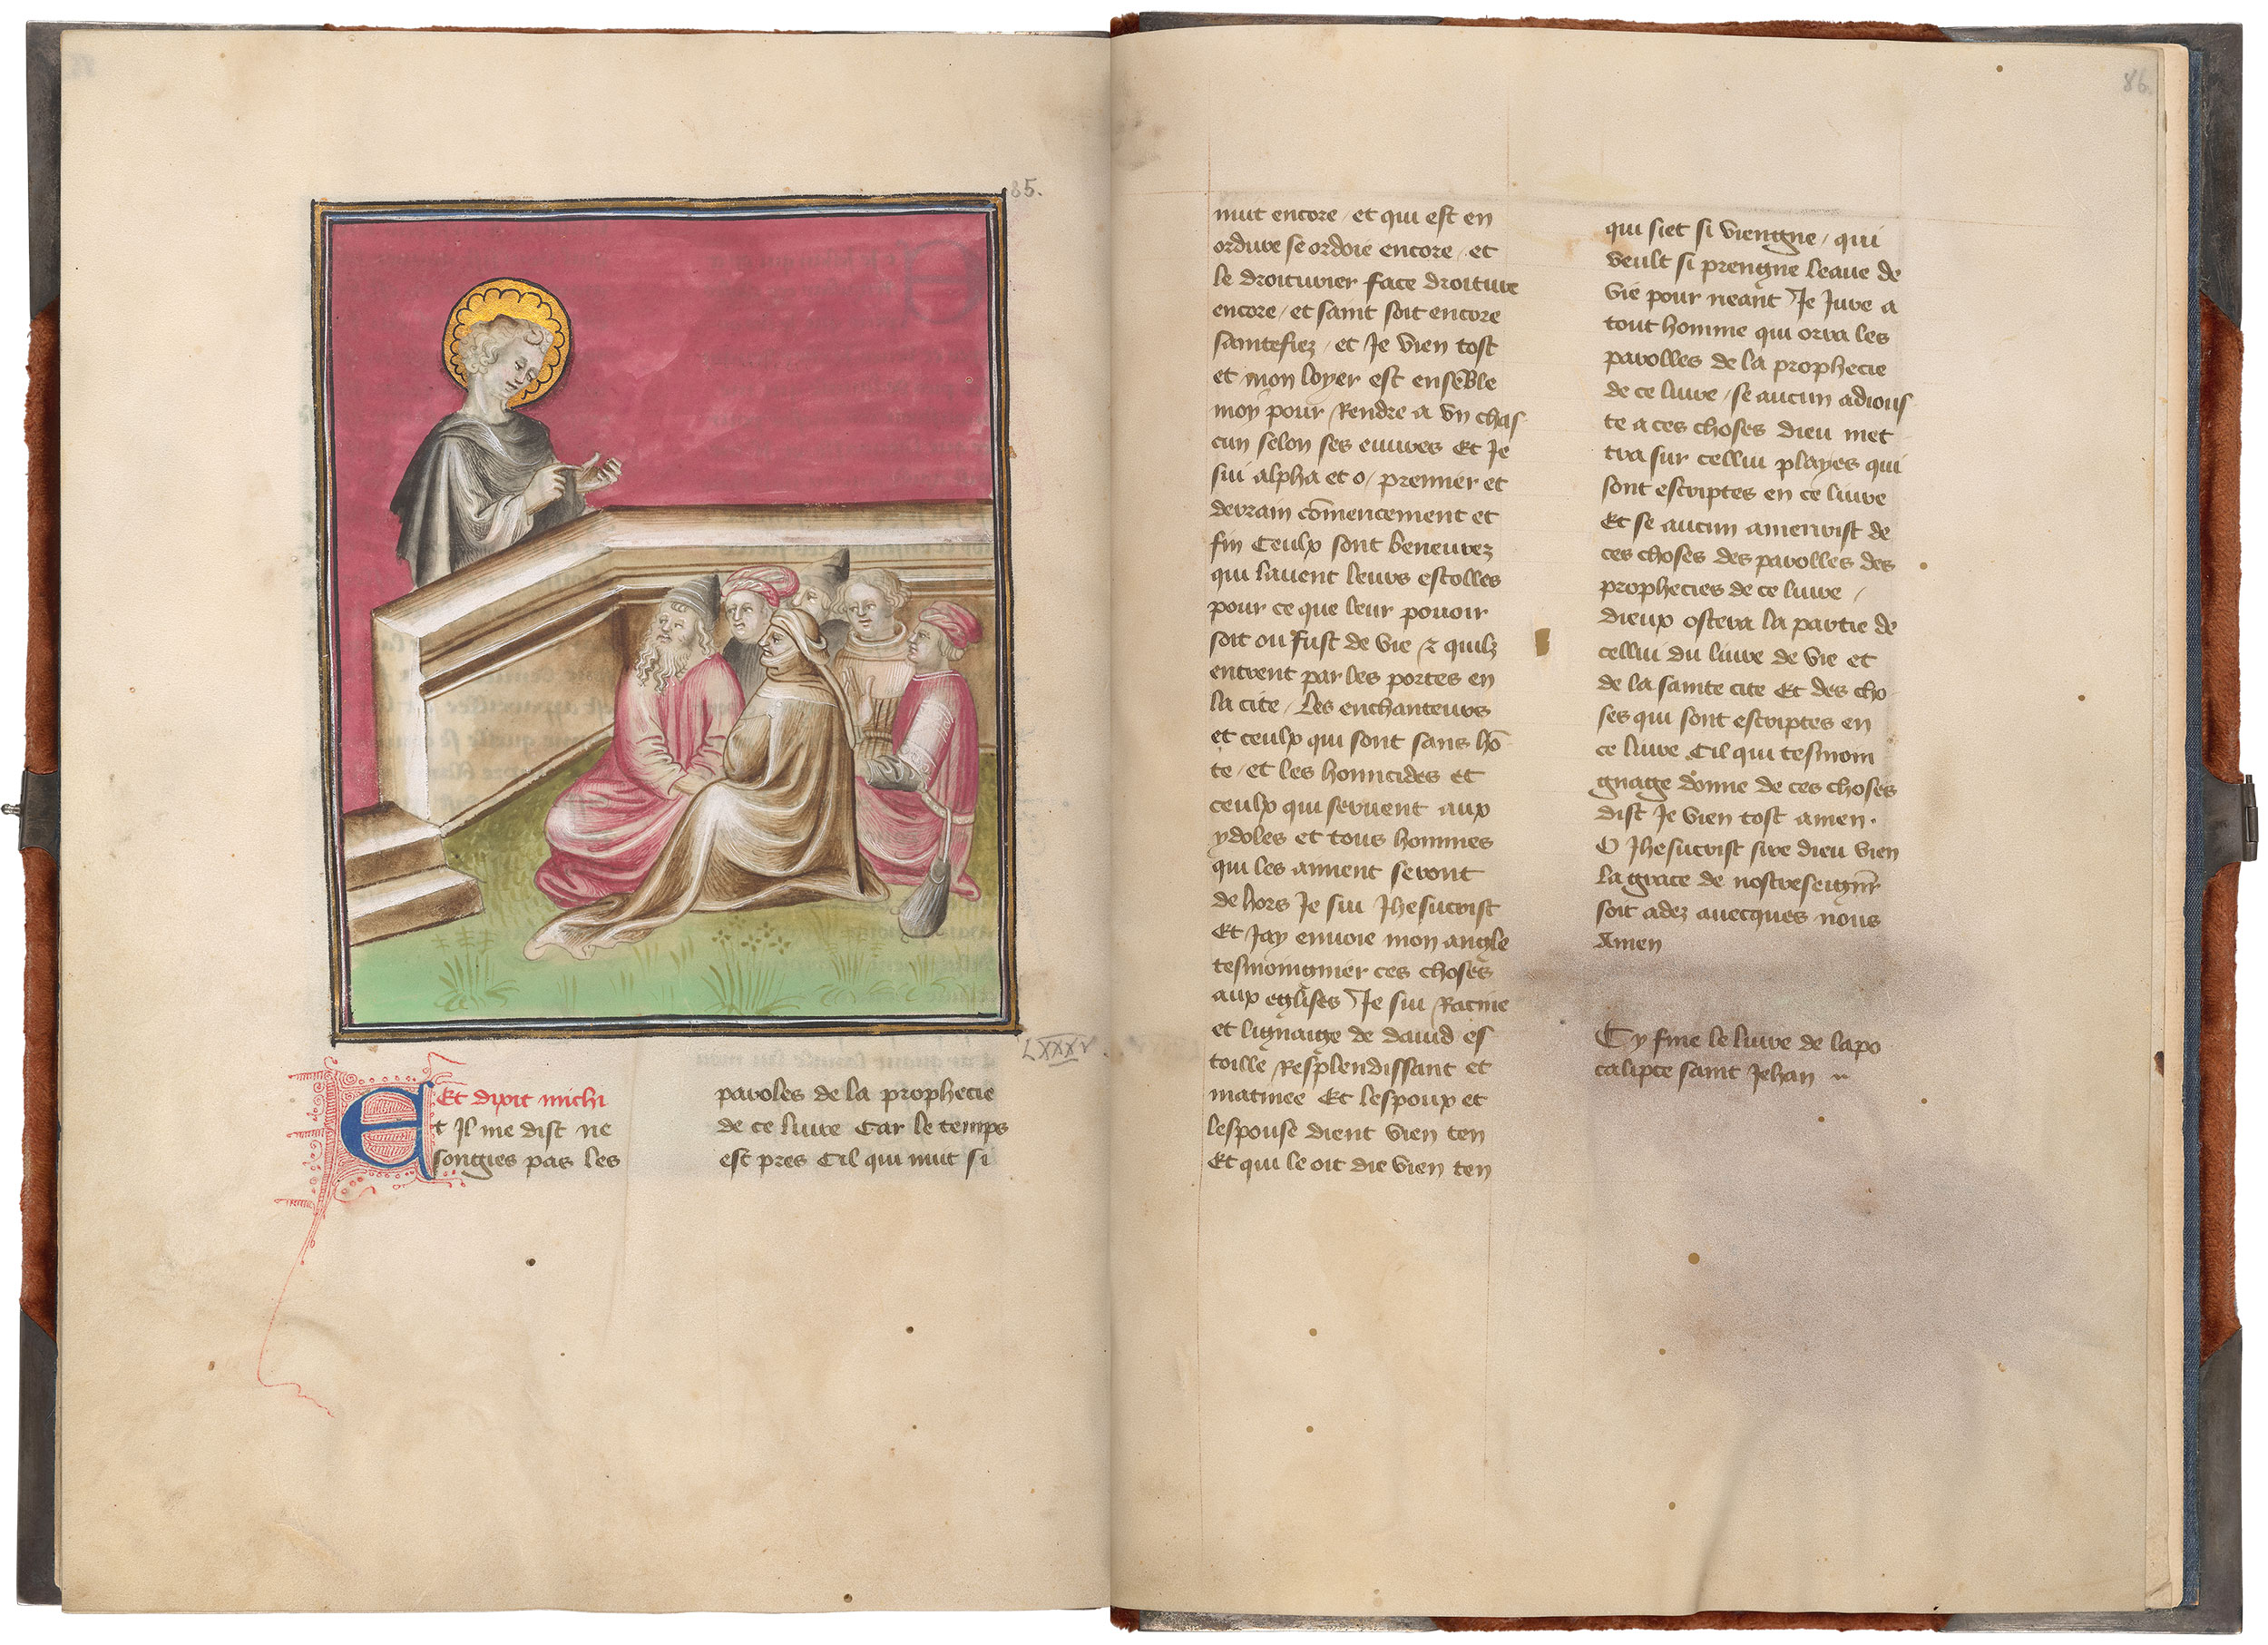 85.
LXXXV
Et dixit michi
Et Il me dist ne
songies pas les
paroles de la prophecie
de ce livre Car le temps
est pres Cil qui nuit si
86.
nuit encore / et qui est en
ordure se ordoie encore / et
le droiturier face droiture
encore / et saint soit encore
saintefiez / et Je vien tost
et mon loyer est ensēble
moy pour Rendre a vn chas
cun selon ses euures Et Je
sui alpha et o / premier et
derrain cōmencement et
fin Ceulx sont beneurez
qui lauent leurs estolles
pour ce que leur pouoir
soit ou fust de vie ⁊ quilz
entrent par les portes en
la cite / Les enchanteurs
et ceulx qui sont sans hō
te / et les homicides et
ceulx qui seruent aux
ydoles et tous hommes
qui les aiment seront
dehors Je sui Jhesucrist
Et Jay enuoie mon angle
tesmoingnier ces choses
aux eglises Je sui Racine
et lignaige de dauid es
toille Resplendissant et
matinee Et lespoux et
lespouse dient vien ten
Et qui le oit die vien ten
qui siet si viengne / qui
veult si prengne leaue de
vie pour neant Je Jure a
tout homme qui orra les
parolles de la prophecie
de ce liure / se aucun adious
te a ces choses dieu met
tra sur cellui playes qui
sont escriptes en ce liure
Et se aucun amenrist de
ces choses des parolles des
prophecies de ce liure /
dieux ostera la partie de
cellui du liure de vie et
de la sainte cite Et des cho
ses qui sont escriptes en
ce liure Cil qui tesmoin
gnage donne de ces choses
dist Je vien tost amen .
O Jhesucrist sire dieu vien
la grace de nostreseignr̄
soit adez auecques nous
Amen
Cy fine le liure de lapo
calipce saint Jehan